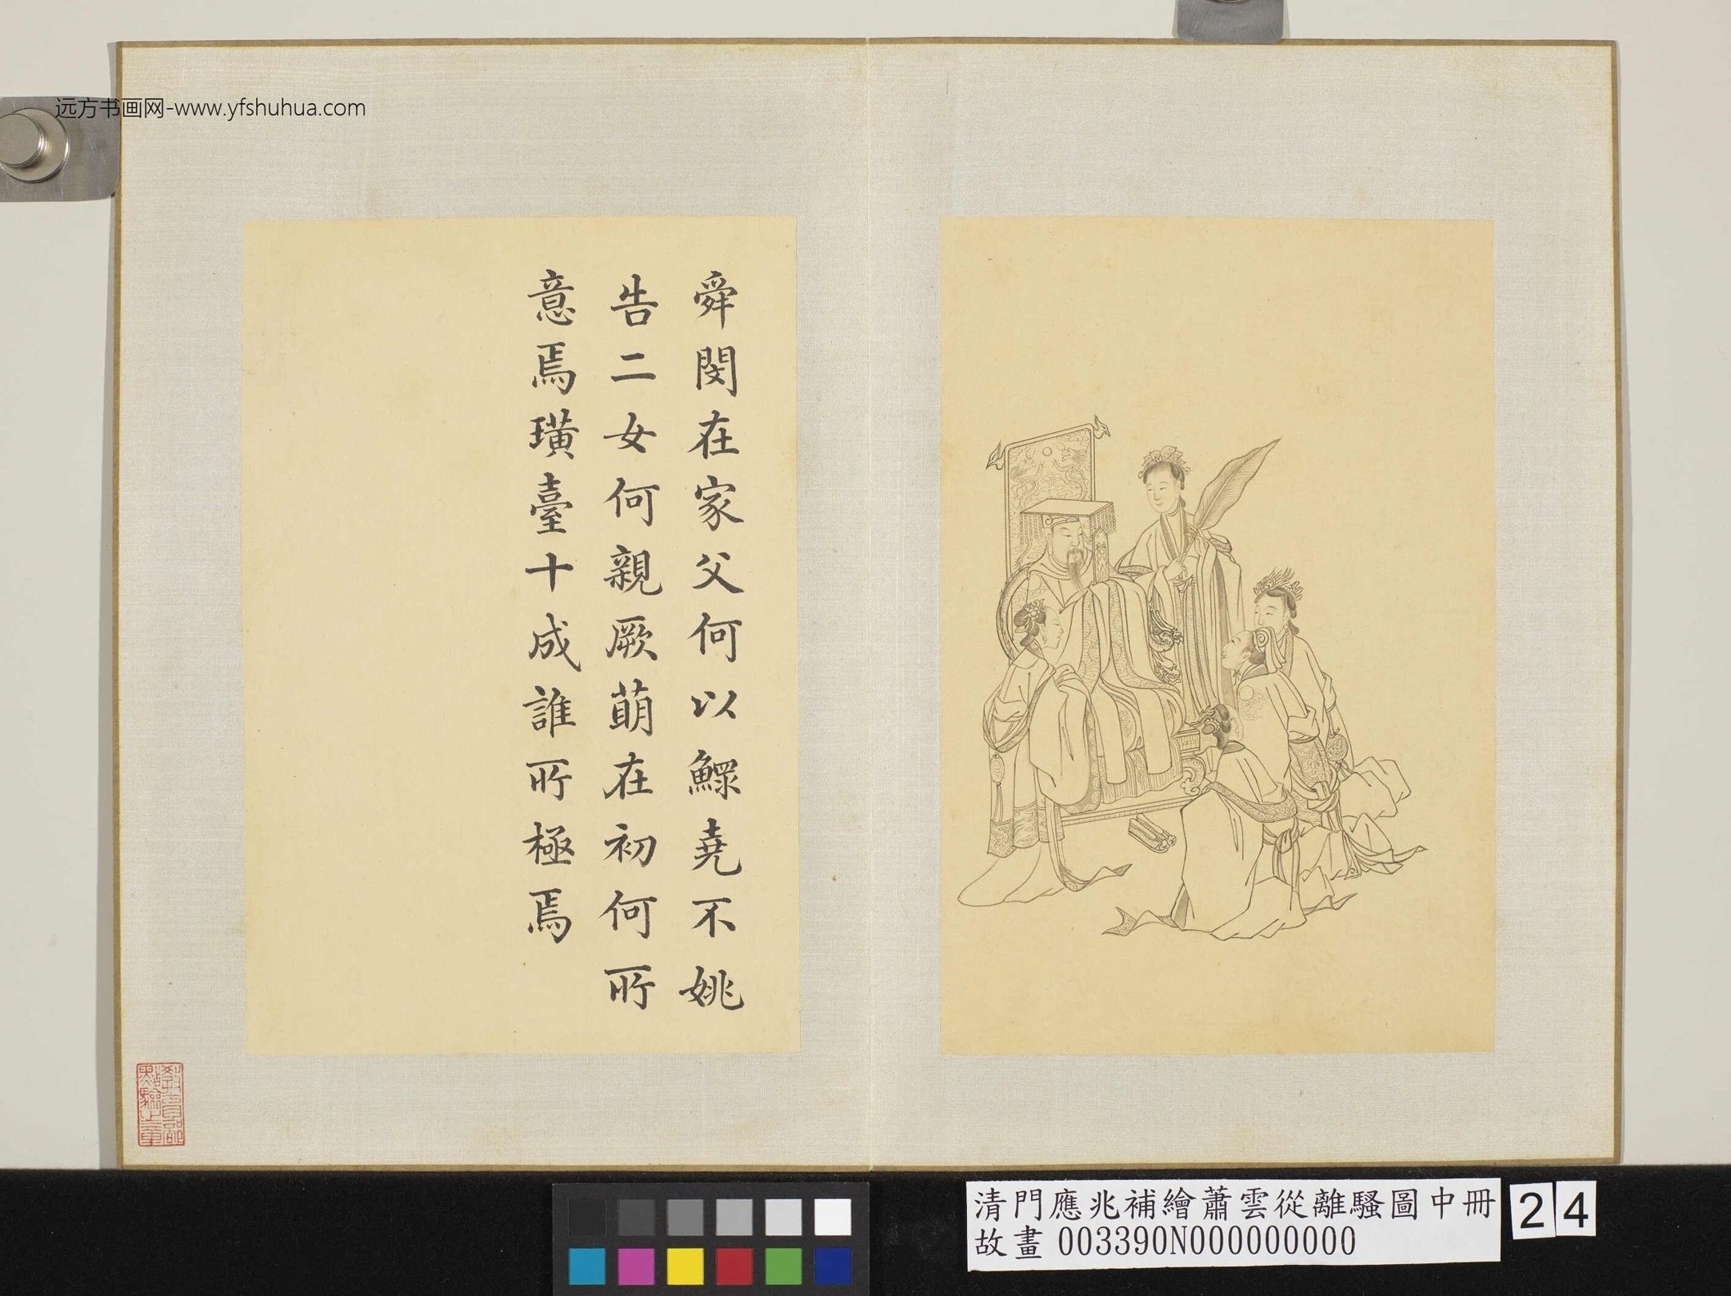 远方书画网-www.yfshuhua.com
舜閔在家父何以鰥堯不姚
告二女何親厥萌在初何所
意焉璜臺十成誰所極焉
教育部點驗之章
清門應兆補繪蕭雲從離騷圖中冊
故畫 003390N000000000
24